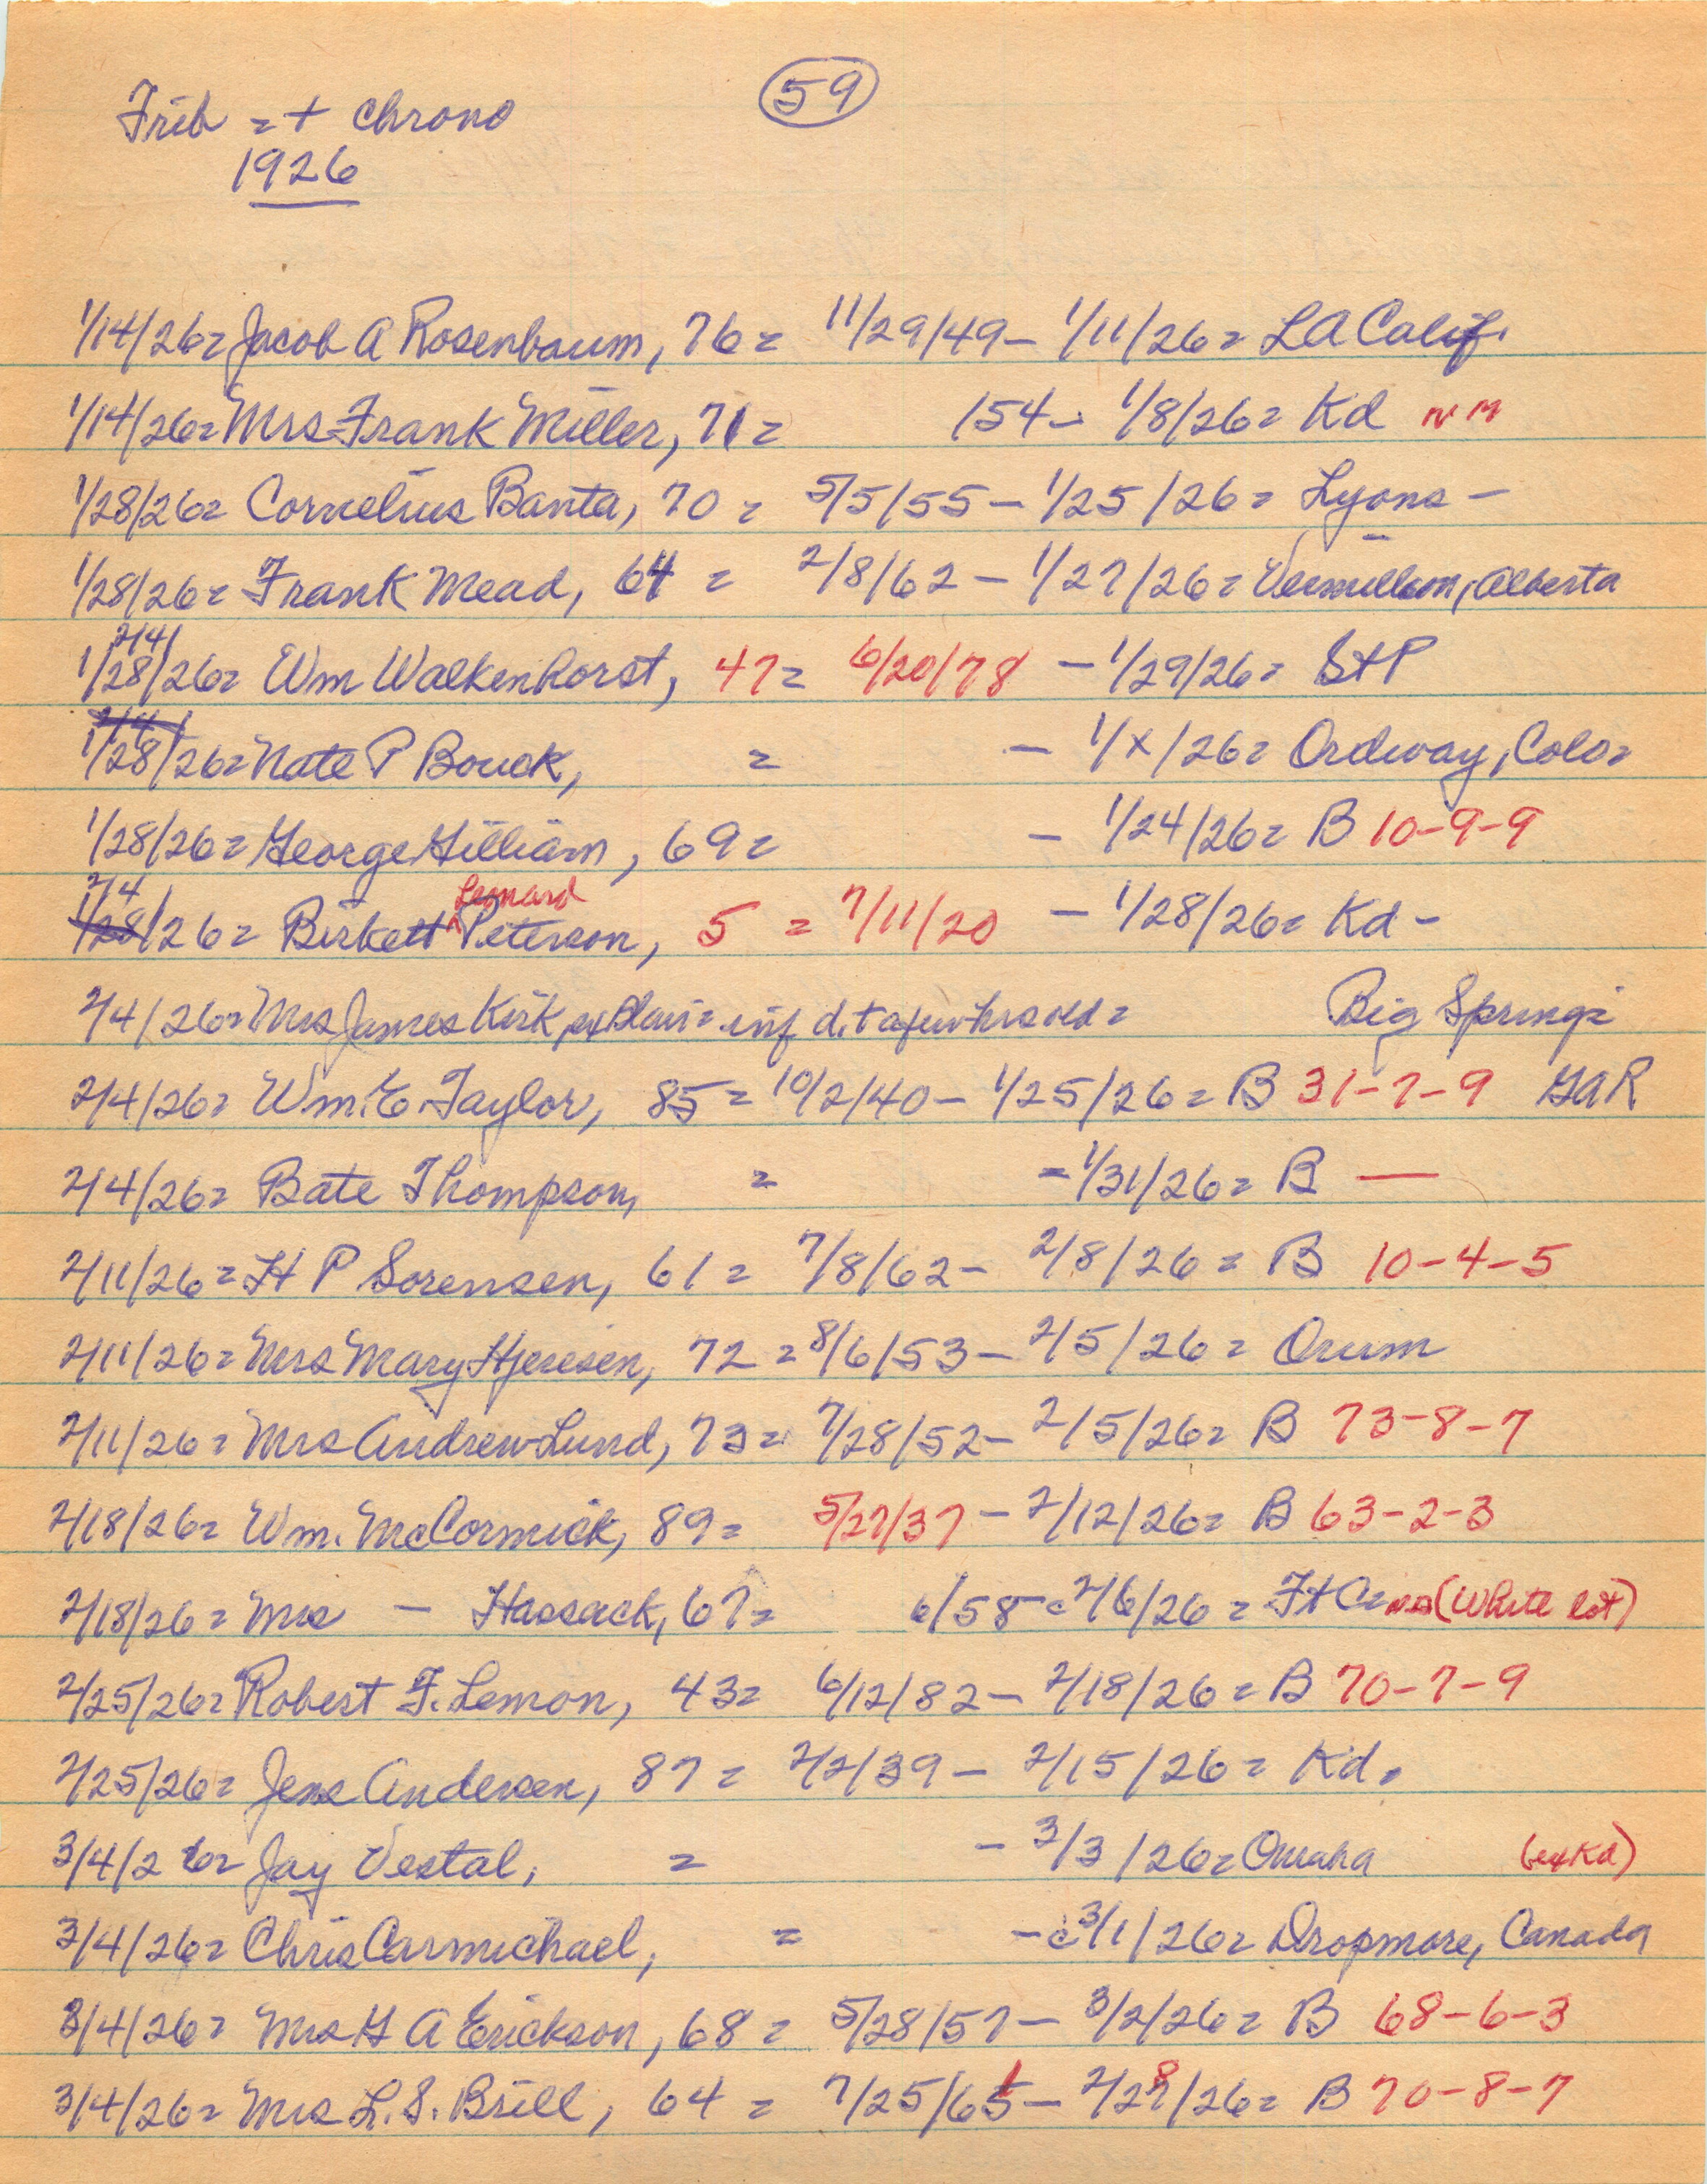 59
Trib = + chrono
1926
1/14/26= Jacob A Rosenbaum, 76= 11/29/49- 1/11/26= LA Calif.
1/14/26= Mrs Frank Miller, 71= 154- 1/8/26= Kd
1/28/26= Cornelius Banta, 70= 5/5/55-1/25/26= Lyons-
1/28/26= Frank Mead, 64= 2/8/62-1/27/26= Vermillion, Alberta
2/4/
1/28/26= Wm Walkenhorst, 47= 6/20/78 -1/29/26= St P
2/4/
1/28/26= Nate P Bouck, = - 1/x/26= Ordway, Colo=
1/28/26= George Gilliam, 69= - 1/24/26= B 10-9-9
2/4 Leonard
1/28/26= Birkett Peterson, 5= 7/11/20 - 1/28/26= Kd-
2/4/26= Mrs James Kirk, inf d. + a few hrs old= Big Springs
2/4/26= Wm. E Taylor, 85= 10/2/40- 1/25/26= B 31-7-9 GAR
2/4/26= Bate Thompson, = -1/31/26= B —
2/11/26= H P Sorensen, 61= 7/8/62- 2/8/26= B 10-4-5
2/11/26= Mrs Mary Hjeresen, 72= 8/6/53- 2/5/26= Orum
2/11/26= Mrs Andrew Lund, 73= 7/28/52- 2/5/26= B 73-8-7
2/18/26= Wm. McCormick, 89= 5/27/37-2/12/26= B 63-2-3
2/18/26= Mrs - Hassack, 67= 6/58-c2/6/26= Ft C= (White lot)
2/25/26= Robert F. Lemon, 43= 6/12/82- 2/18/26= B 70-7-9
2/25/26= Jens Andersen, 87= 2/2/39- 2/15/26= Kd=
3/4/26= Jay Vestal, = - 3/3/26= Omaha (ex Kd)
3/4/26= Chris Carmichael, = -c3/1/26= Dropmore, Canada
3/4/26= Mrs G A Erickson, 68= 5/28/57- 3/2/26= B 68-6-3
3/4/26= Mrs L. S. Brill, 64= 7/25/61- 2/28/26= B 70-8-7